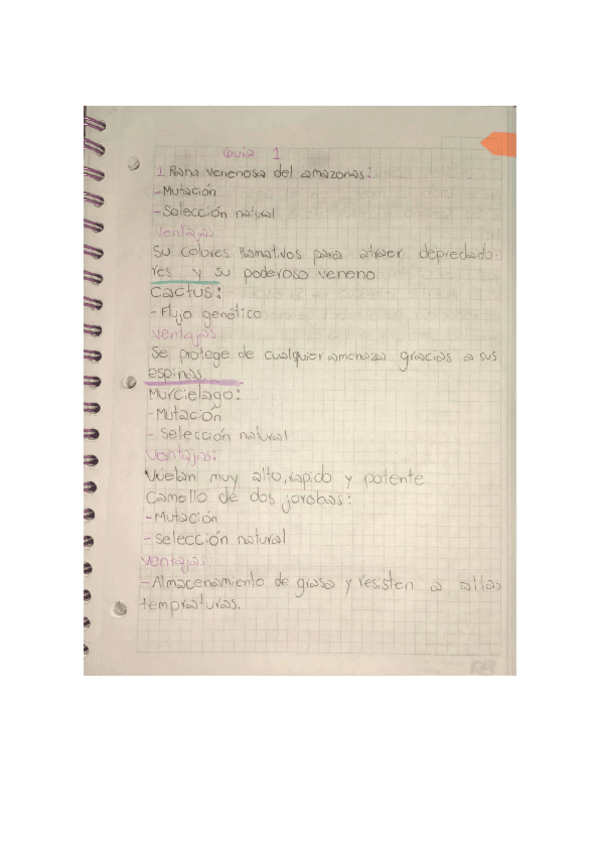 Guia 1
1. Rana venenosa del amazonas:
-Mutación
-Selección natural
Ventajas
Su colores llamativos para atraer depredado-
res y su poderoso veneno.
Cactus:
-Flujo genético
Ventajas:
Se protege de cualquier amenaza gracias a sus
espinas.
Murcielago:
-Mutación
- Selección natural
Ventajas:
Vuelan muy alto, rapido y potente.
Camello de dos jorobas:
-Mutación
-Selección natural
Ventajas:
-Almacenamiento de grasa y resisten a altas
tempraturas.